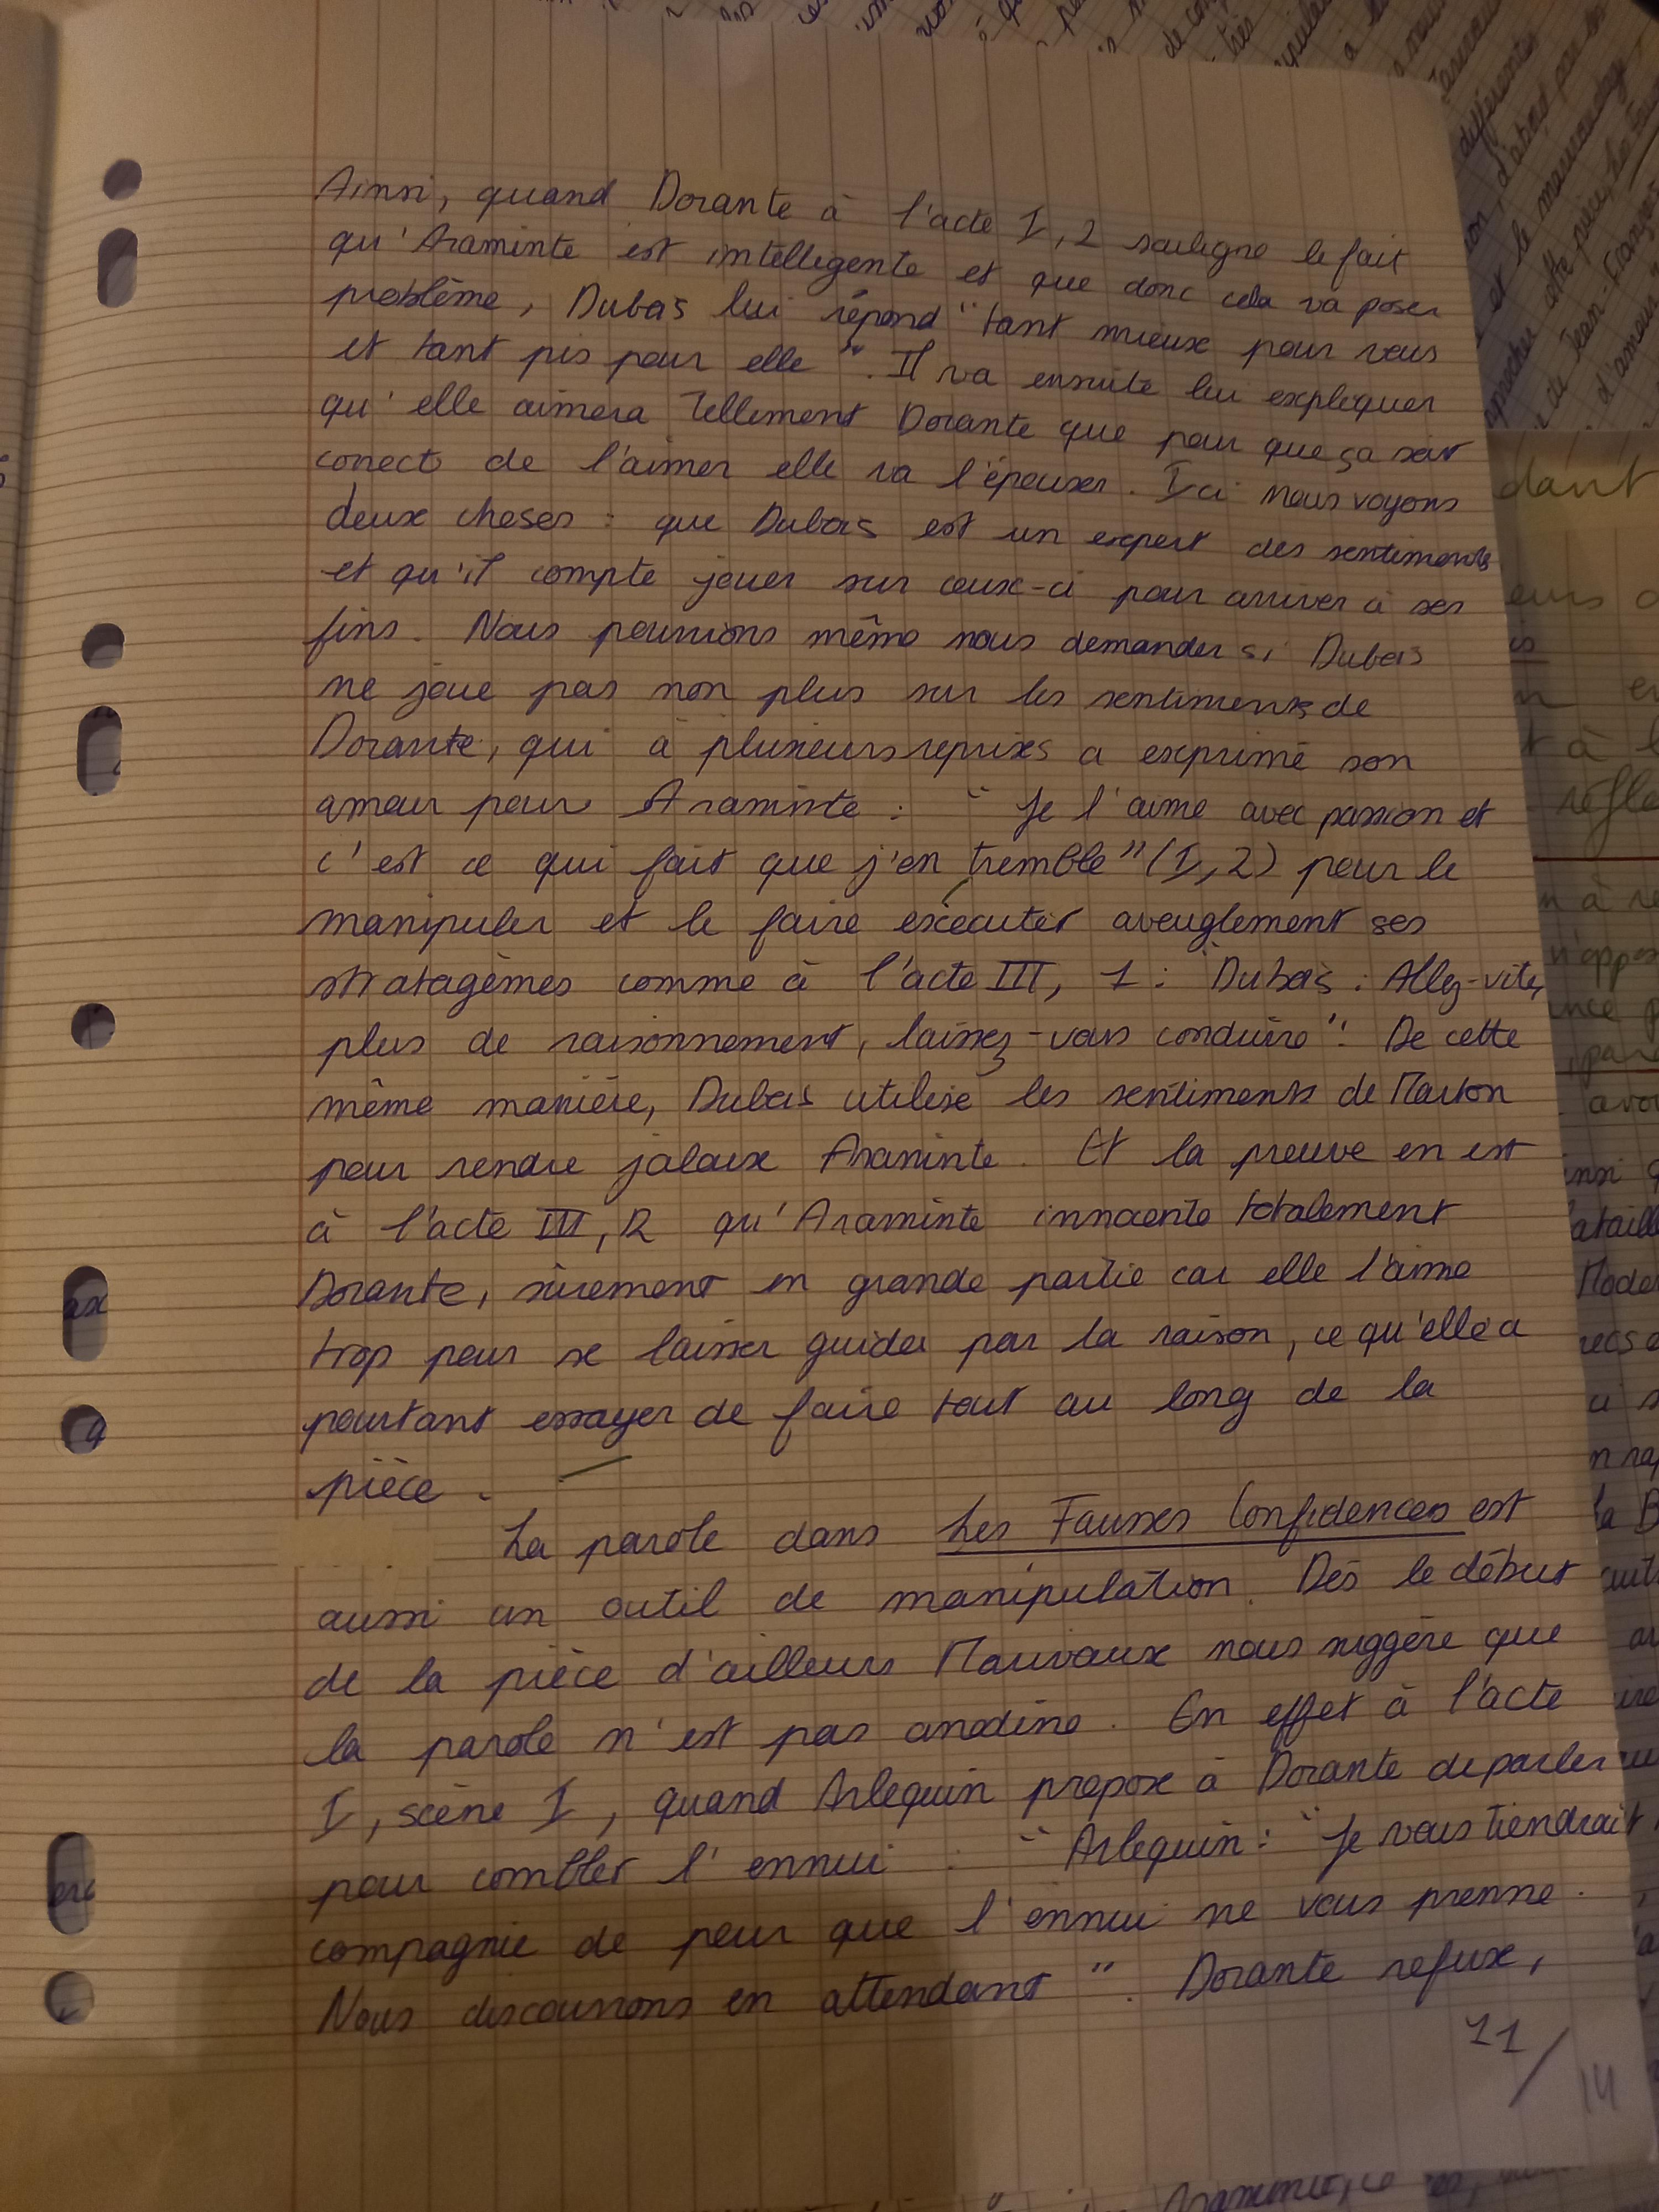 Ainsi, quand Dorante à l'acte I, 2 souligne le fait
qu'Araminte est intelligente et que donc cela va poser
problème, Dubois lui répond "tant mieux pour vous
et tant pis pour elle". Il va ensuite lui expliquer
qu'elle aimera tellement Dorante que pour que ça soit
correct de l'aimer elle va l'épouser. Ici nous voyons
deux choses : que Dubois est un expert des sentiments
et qu'il compte jouer sur ceux-ci pour arriver à ses
fins. Nous pourrions même nous demander si Dubois
ne joue pas non plus sur les sentiments de
Dorante, qui à plusieurs reprises a exprimé son
amour pour Araminte : "Je l'aime avec passion et
c'est ce qui fait que j'en tremble" (I, 2) pour le
manipuler et le faire exécuter aveuglement ses
stratagèmes comme à l'acte III, 1 : "Dubois : Allez-vite,
plus de raisonnement, laissez-vous conduire". De cette
même manière, Dubois utilise les sentiments de Marton
pour rendre jalouse Araminte. Et la preuve en est
à l'acte III, 12 qu'Araminte innocente totalement
Dorante, sûrement en grande partie car elle l'aime
trop pour se laisser guider par la raison, ce qu'elle a
pourtant essayer de faire tout au long de la
pièce.
La parole dans Les Fausses Confidences est
aussi un outil de manipulation. Dès le début
de la pièce d'ailleurs Marivaux nous suggère que
la parole n'est pas anodine. En effet à l'acte
I, scène I, quand Arlequin propose à Dorante de parler
pour combler l'ennui : "Arlequin : "Je vous tiendrait
compagnie de peur que l'ennui ne vous prenne.
Nous discourrons en attendant". Dorante refuse,
11/14